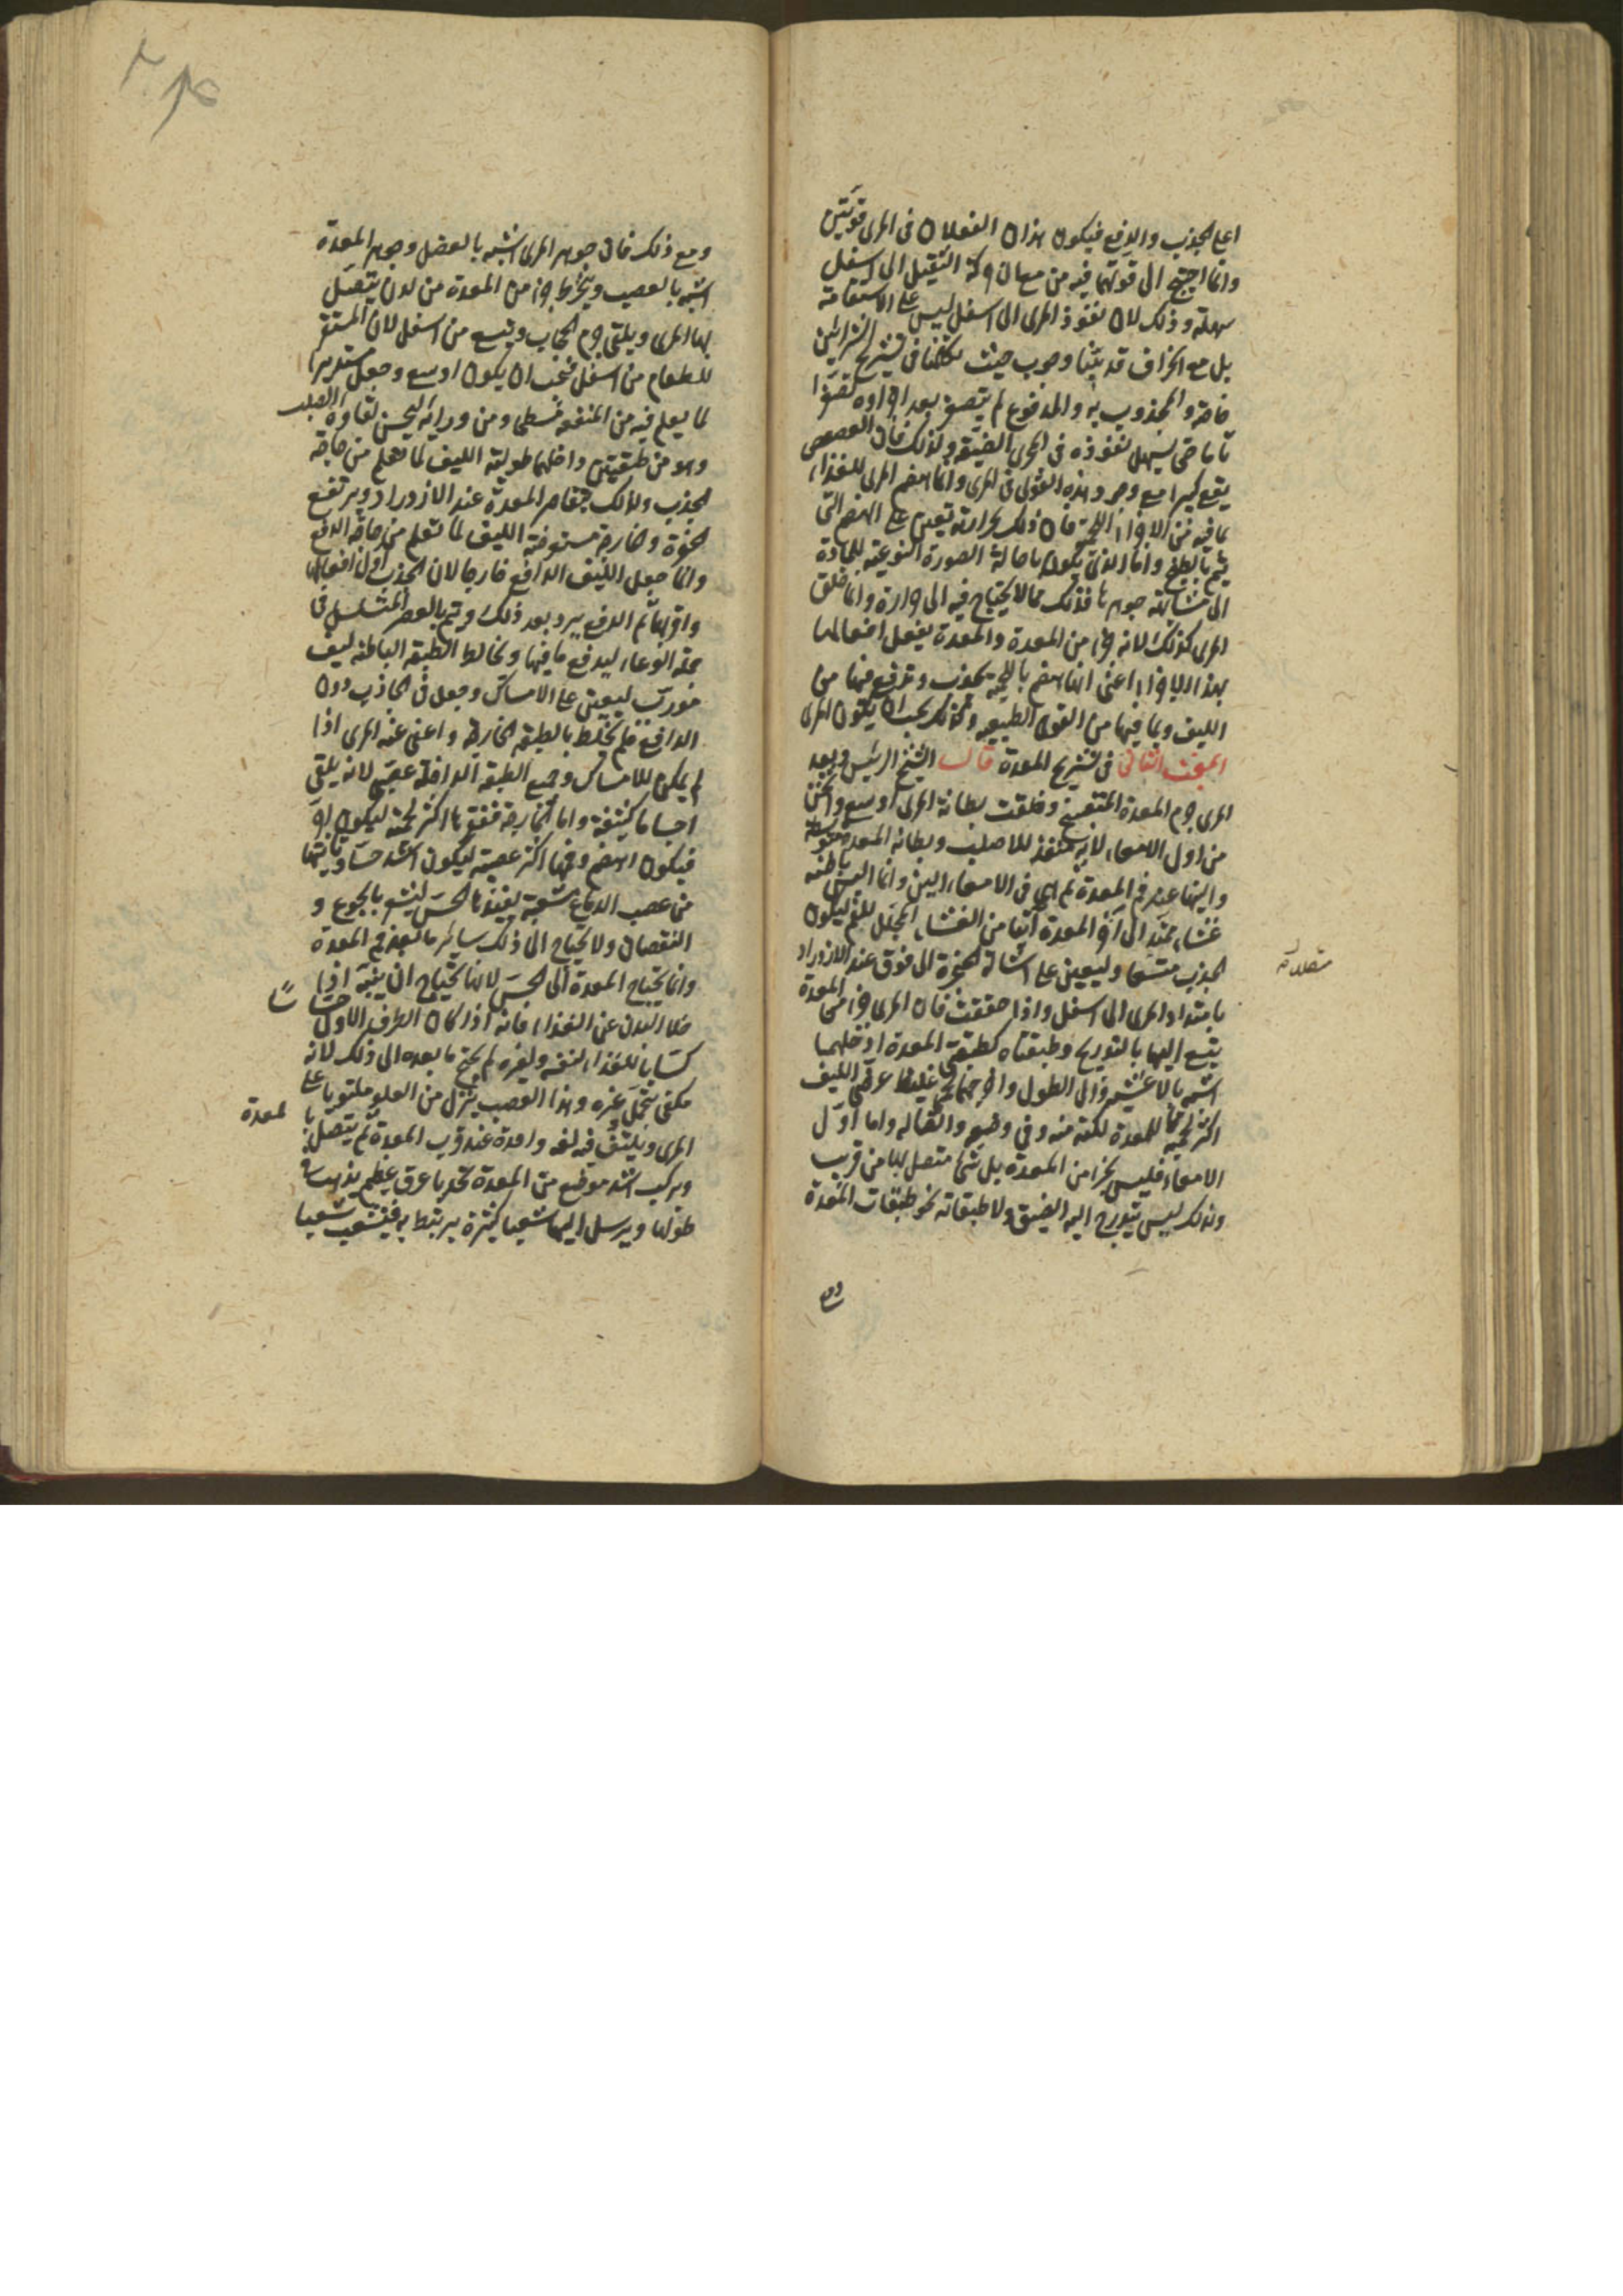 اعنى الجذب والدفع فيكون هذان الفعلان فى المرى قويتين
وانما احتيج الى قوتهما فيه من مع ان حركة الثقيل الى اسفل
سهلة وذلك لان نفوذ المرى الى اسفل ليس على الاستقامة
بل مع انحراف قد بيّنا وجوب حيث تكلمنا فى تشريح الشرايين
خاصة والمجذوب به والمدفوع لم يتصغر بعد اجزاوه تصغرا
تاما حتى يسهل نفوذه فى المجرى الضيّقة ولذلك فان الغصص
يقع كثيرا مع وجود هذه القوى فى المرى وانما هضم المرى للغذاء
بما فيه من الاجزاء اللحمية فان ذلك بحرارته تعين على الهضم التى
يتم بالطبخ واما الذى يكون باحالة الصورة النوعية للمادة
الى مشابهة جوهرها فذلك مما لا يحتاج فيه الى حرارة وانما خلق
المرى كذلك لانه جزء من المعدة والمعدة يفعل افعالها
بهذا الاجزاء اعنى انها هضم باللحمية يجذب وتدفع فيها من
الليف وبما فيها من القوى الطبيعية وكذلك يجب ان يكون المرى
المبحث الثانى فى تشريح المعدة قال الشيخ الرئيس وبعد
المرى جرم المعدة المتقعر وخلقت بطانة المرى اوسع واثخن
من اول الامعاء لانه منفذ للاصلب وبطانة المعدة متوسطة
والينها عند فم المعدة ثم هى فى الامعاء الين وانما البس باطنه
غشاء ممتد الى آخر المعدة آتيا من الغشاء المجلل للفم ليكون
الجذب متصلا وليعين على اشالة الحنجرة الى فوق عند الازدراد
متصلا
بامتداد المرى الى اسفل واذا حققت فان المرى جزء من المعدة
يتسع اليها بالتدريج وطبقتاه كطبقتى المعدة ادخلهما
اشبه بالاغشية والى الطول واخرجهما لحمى غليظ عرضى الليف
اكثر لحمية مما للمعدة لكنه منه وفى وضعه واتصاله واما اول
الامعاء فليس بجزء من المعدة بل شئ متصل بها من قريب
ولذلك ليس يتدرج اليه الضيق ولا طبقاته نحو طبقات المعدة
ومع
ومع ذلك فان جوهر المرى اشبه بالعضل وجوهر المعدة
اشبه بالعصب وينخرط جزء من المعدة من لدن يتصل
بها المرى ويلقى جرم الحجاب ويتسع من اسفل لان المستقر
للطعام من اسفل فيجب ان يكون اوسع وجعل مستديرا
لما يعلم فيه من المنفعة مسطحا ومن ورائه ليحسن لقاوه الصلب
وهو من طبقتين داخلهما طولية الليف لما تعلم من حاجة
الجذب ولذلك يتقاصر المعدة عند الازدراد ويرتفع
الحنجرة وخارجه مستعرضة الليف لما تعلم من حاجة الدفع
وانما جعل الليف الدافع خارجا لان الجذب اول افعالها
واقربها ثم الدفع يرد بعد ذلك ويتم بالعصر المتسلسل فى
جملة الوعاء ليدفع ما فيها ويخالط الطبقة الباطنة ليف
مورب ليعين على الامساك وجعل فى الجاذب دون
الدافع فلم يخلط بالطبقة الخارجة واعفى عنه المرى اذا
لم يكن للامساك وجميع الطبقة الداخلة عصبى لانه يلقى
اجساما كثيفة واما الخارجة فقعرها اكثر لحمية ليكون احر
فيكون اهضم وفمها اكثر عصبية ليكون اشد حسا وياتيها
من عصب الدماغ شعبة يفيدها الحس لتشعر بالجوع و
النقصان ولا يحتاج الى ذلك سائر ما بعد فم المعدة
وانما يحتاج المعدة الى الحس لانها يحتاج ان ينبه اذا
خلا البدن عن الغذاء فانه اذا كان الطرف الاول حساسا
كسابا للغذاء لنفسه ولغيره لم يحتج ما بعده الى ذلك لانه
مكفى بتحمل غيره وهذا العصب ينزل من العلو ملتويا على
المرى ويلتف فيه لفة واحدة عند قرب المعدة ثم يتصل با
لمعدة
ويركب اشد موضع من المعدة تحدبا عرق عظيم يذهب فى
طولها ويرسل اليها شعبا كثيرة يرتبط به فيتشعب شعبا